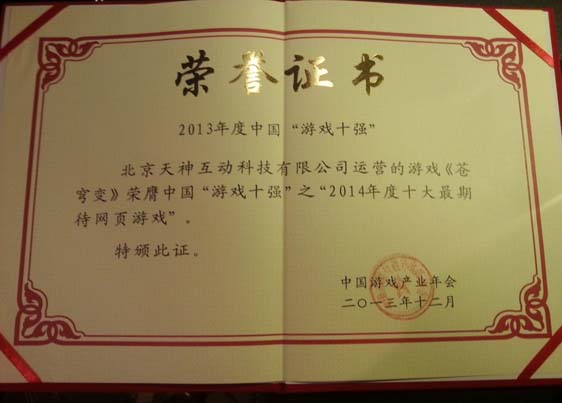 荣誉证书
2013年度中国“游戏十强”
北京天神互动科技有限公司运营的游戏《苍
穹变》荣膺中国“游戏十强”之“2014年度十大最期
待网页游戏”。
特颁此证。
中国游戏产业年会
二〇一三年十二月